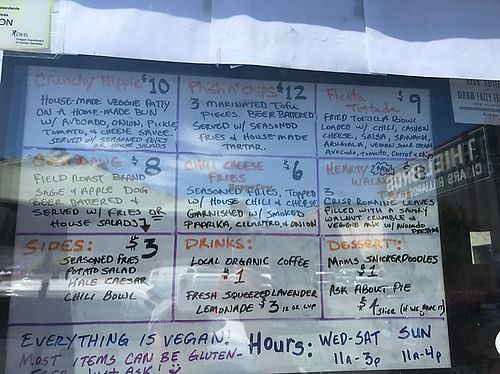 ON
DHS
Crunchy Hippie $10
HOUSE-MADE VEGGIE PATTY
ON A HOME-MADE BUN
W/ AVOCADO, ONION, PICKLE,
TOMATO, & CHEESE SAUCE.
SERVED W/ SEASONED FRIES
OR HOUSE SALADS
Phish n' chips $12
3 MARINATED TOFU
PIECES. BEER BATTERED,
SERVED W/ SEASONED
FRIES & HOUSE MADE
TARTAR.
Fiesta $9
Tostada
FRIED TORTILLA BOWL
LOADED W/ CHILI, CASHEW
CHEESE, SALSA, SPINACH,
ARUGALA, VEGAN SOUR CREAM
AVOCADO, TOMATO, CARROT & CHIPS
Corn DAWG $8
FIELD ROAST BRAND
SAGE & APPLE DOG
BEER BATTERED &
SERVED W/ FRIES OR
HOUSE SALADS
CHILI CHEESE $6
FRIES
SEASONED FRIES, TOPPED
W/ HOUSE CHILI & CHEESE
GARNISHED W/ SMOKED
PAPRIKA, CILANTRO, & ONION
HEARTY
3
CRISP ROMAINE LEAVES
FILLED WITH A SMOKY
WALNUT CRUMBLE &
VEGGIE MIX W/ AVOCADO
DRESSING
SIDES: $3
SEASONED FRIES
POTATO SALAD
KALE CAESAR
CHILI BOWL
DRINKS:
LOCAL ORGANIC COFFEE
$1
FRESH SQUEEZED LAVENDER
LEMONADE $3 12 OZ CUP
DESSERT:
MOMS SNICKERDOODLES
$1
ASK ABOUT PIE
$4 slice (IF WE HAVE IT)
EVERYTHING IS VEGAN!
MOST ITEMS CAN BE GLUTEN-
FREE JUST ASK!
Hours: WED-SAT SUN
11A-3P 11A-4P